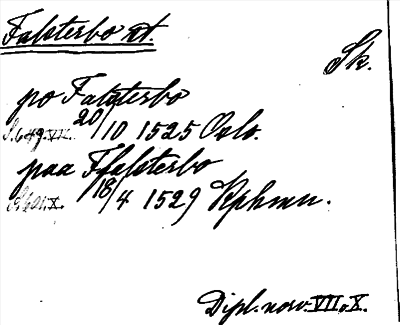 Falsterbo st.
Sk.
po Falsterbo
S. 649. VII. 20/10 1525 Oslo.
paa Ffalsterbo
18/4 1529 Kphmn.
Dipl. norv. VII. o. X.